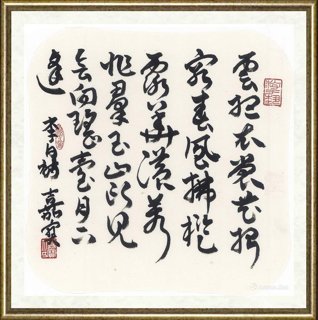 雲想衣裳花想
容春風拂檻
露華濃若
非群玉山頭見
會向瑤臺月下
逢 李白詩 嘉寶